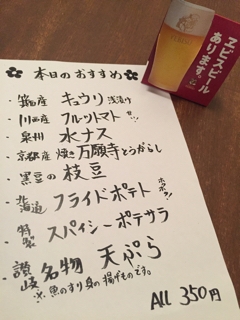 本日のおすすめ
・箕面産 キュウリ 浅漬け
・川西産 フルーツトマト
・泉州 水ナス
・京都産 焼き万願寺とうがらし
・黒豆の枝豆
・北海道 フライドポテト ホクホク!
・特製 スパイシーポテサラ
・讃岐名物 天ぷら
※魚のすり身の揚げものです。
ALL 350円
ヱビスビール
あります。